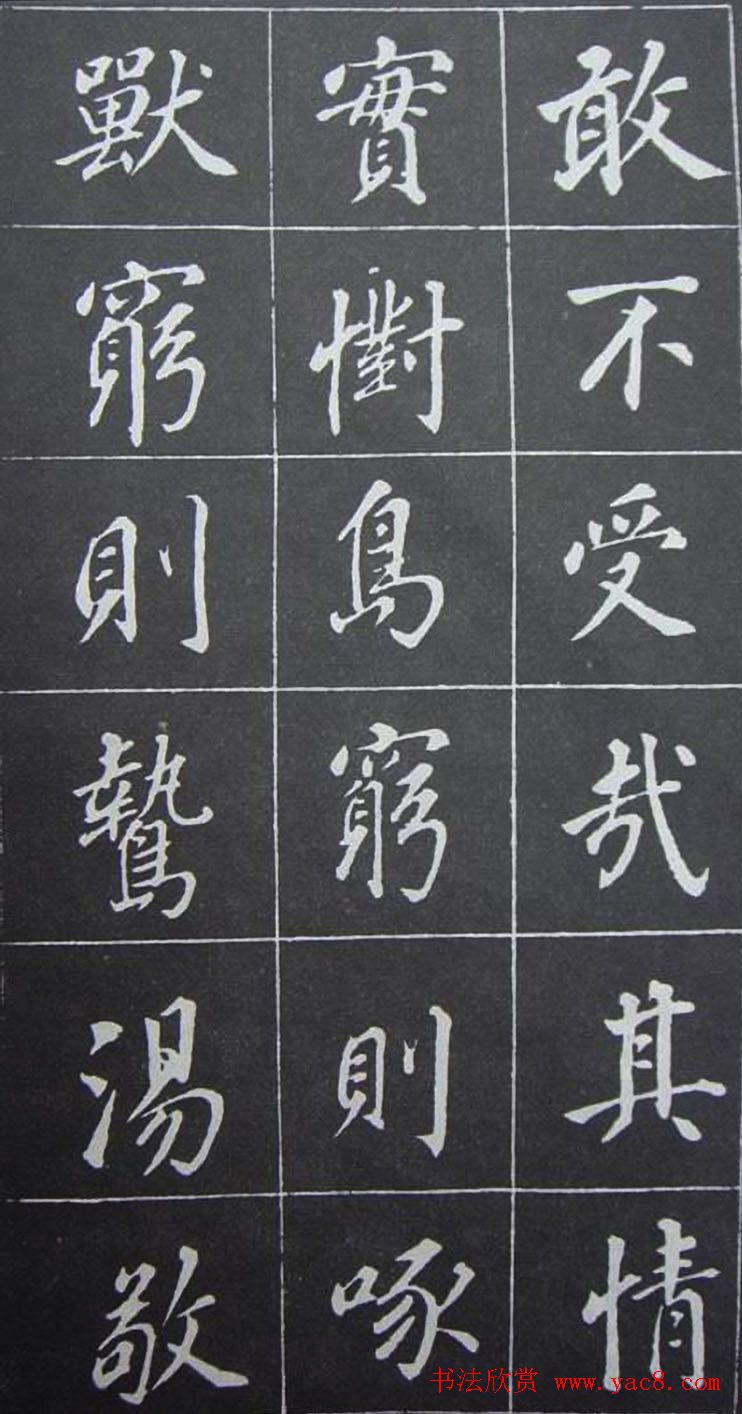 敢不受哉其情
實懟鳥窮則啄
獸窮則鷙湯敬
书法欣赏 www.yac8.com